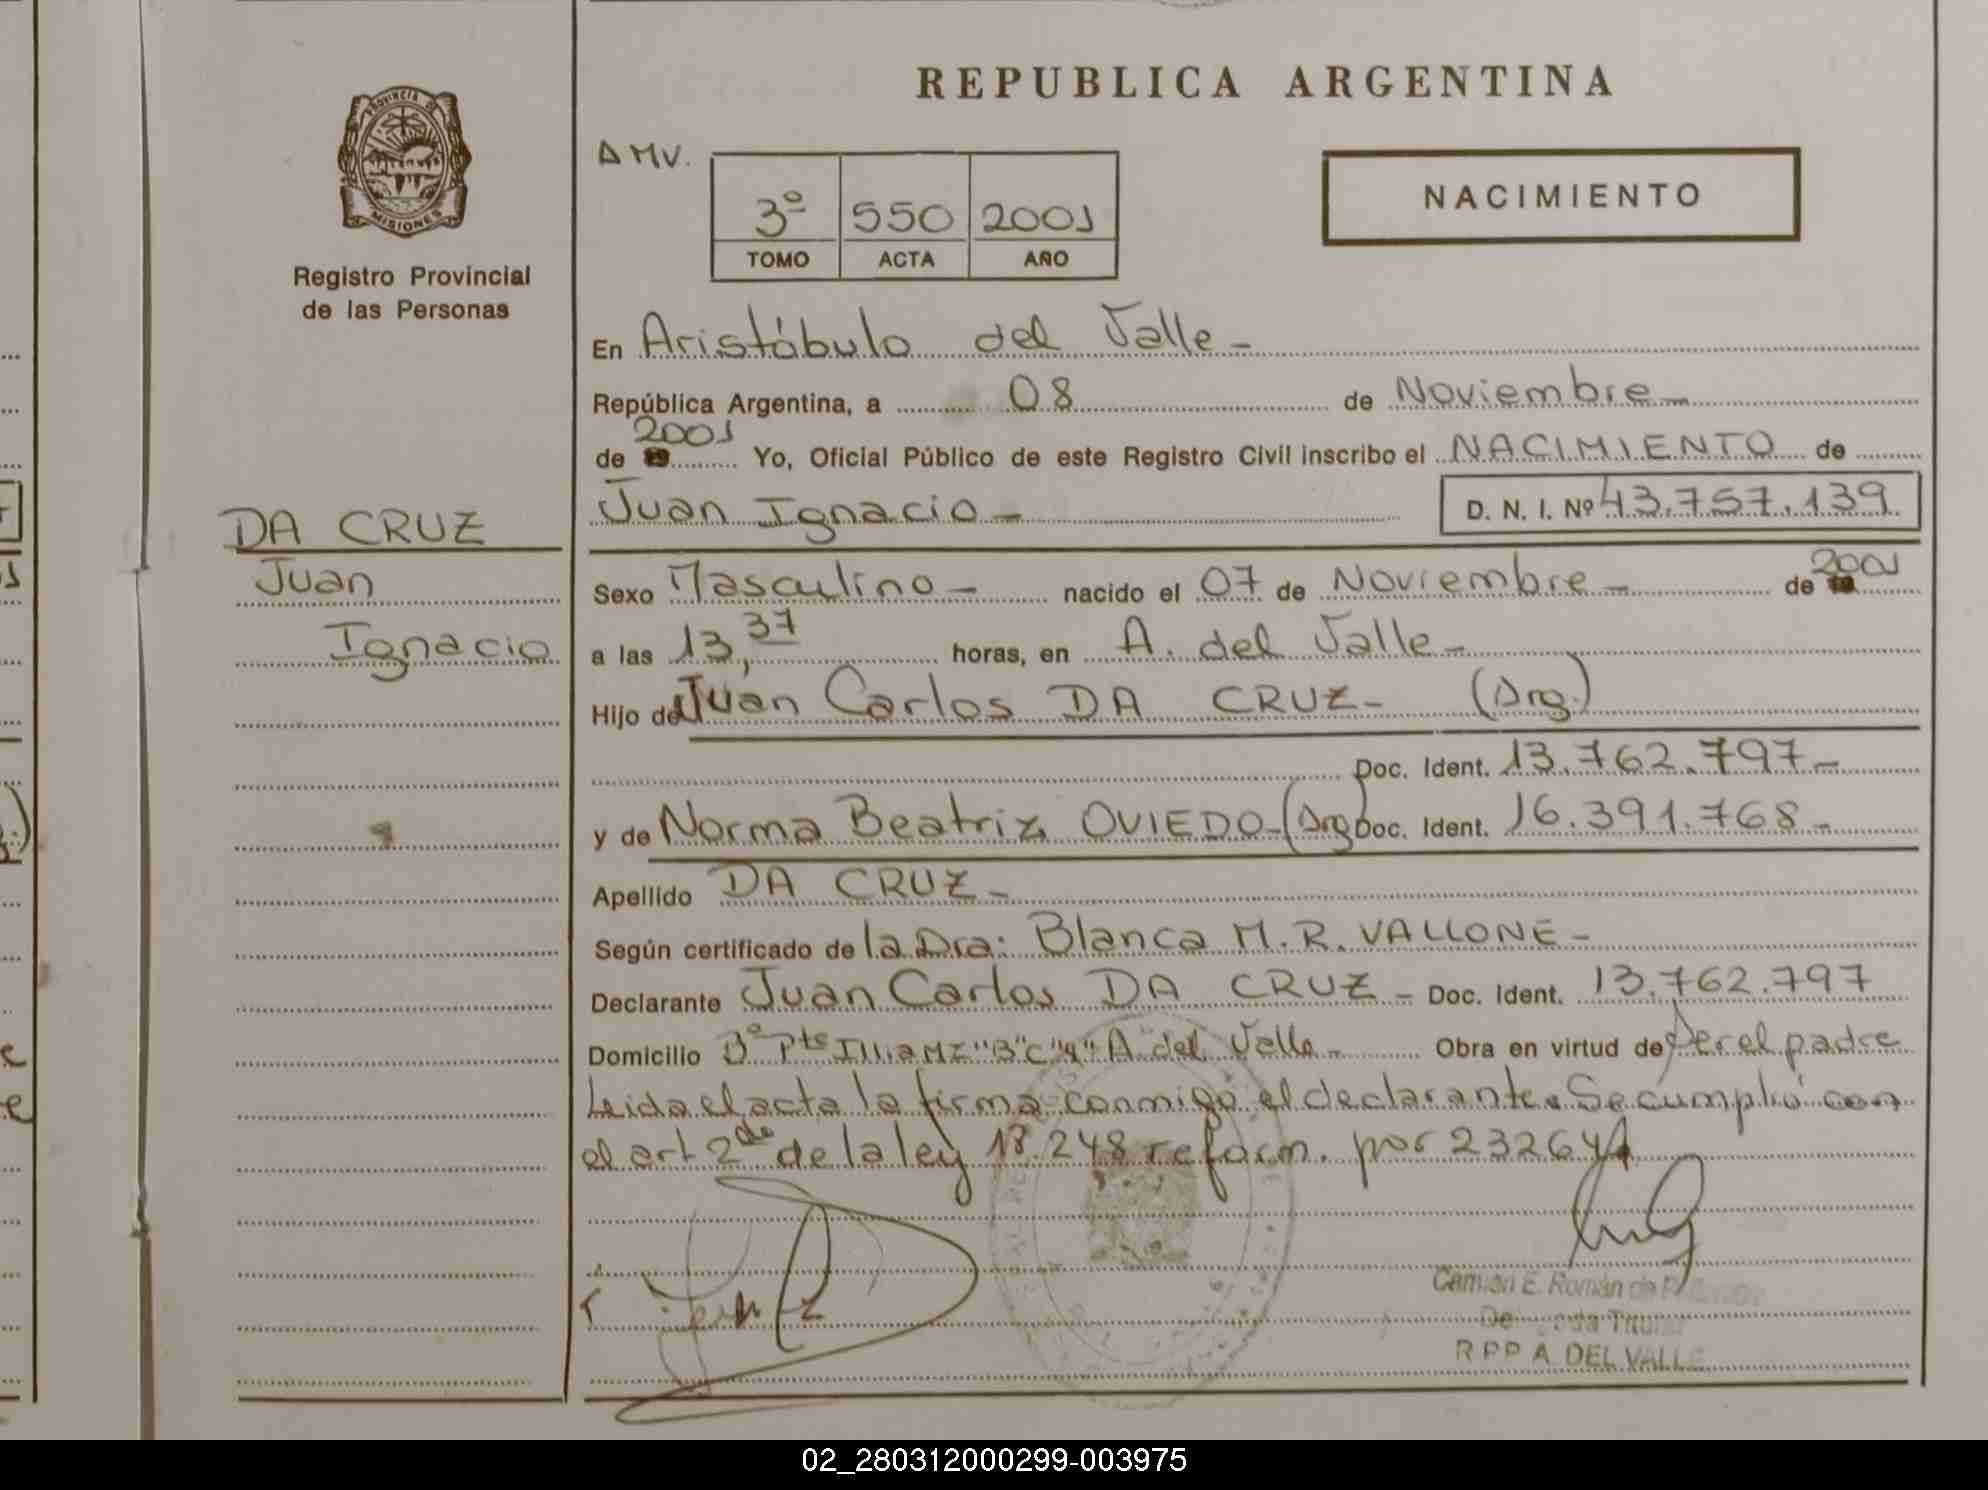 REPUBLICA ARGENTINA
PROVINCIA DE
MISIONES
Registro Provincial
de las Personas
AMV.
3º 550 2001
TOMO ACTA AÑO
NACIMIENTO
En Aristóbulo del Valle-
República Argentina, a 08 de Noviembre-
2001
de 19 Yo, Oficial Público de este Registro Civil inscribo el NACIMIENTO de
Juan Ignacio- D. N. I. Nº 43.757.139
DA CRUZ
Juan
Ignacio
Sexo Masculino- nacido el 07 de Noviembre- de 2001
a las 13,37 horas, en A. del Valle-
Hijo de Juan Carlos DA CRUZ- (Arg.)
Doc. Ident. 13.762.797-
y de Norma Beatriz OVIEDO-(Arg) Doc. Ident. 16.391.768-
Apellido DA CRUZ-
Según certificado de la Dra: Blanca M.R. VALLONE-
Declarante Juan Carlos DA CRUZ- Doc. Ident. 13.762.797
Domicilio Illia MZ "B" A. del Valle- Obra en virtud de ser el padre
Leida el acta la firma conmigo el declarante. Se cumplió con
el art 2do de la ley 18.248 reform. por 23264
E. Román de
Titular
RPP A. DEL VALLE
02_280312000299-003975